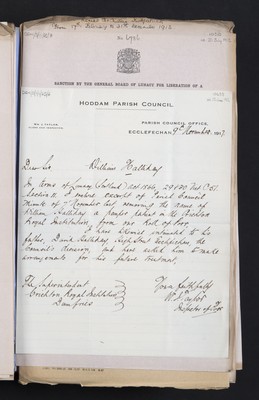 SANCTION BY THE GENERAL BOARD OF LUNACY FOR LIBERATION OF A
HODDAM PARISH COUNCIL.
PARISH COUNCIL OFFICE,
ECCLEFECHAN, 9th November, 1917.
Dear Sir,
William Halliday
In terms of Lunacy (Scotland) Act 1866, 29 & 30 Vict. C. 51
Section 11 I enclose Council
Minute of 7 November last removing the name of
William Halliday a pauper patient in the Crichton
Royal Institution, from our Roll of Poor.
I have likewise intimated to his
father, David Halliday, High Street Ecclefechan, the
Council's decision, and have asked him to make
arrangements for his future treatment.
The Superintendent
Yours faithfully
Crichton Royal Institution
W. J. Taylor
Dumfries
Inspector of Poor